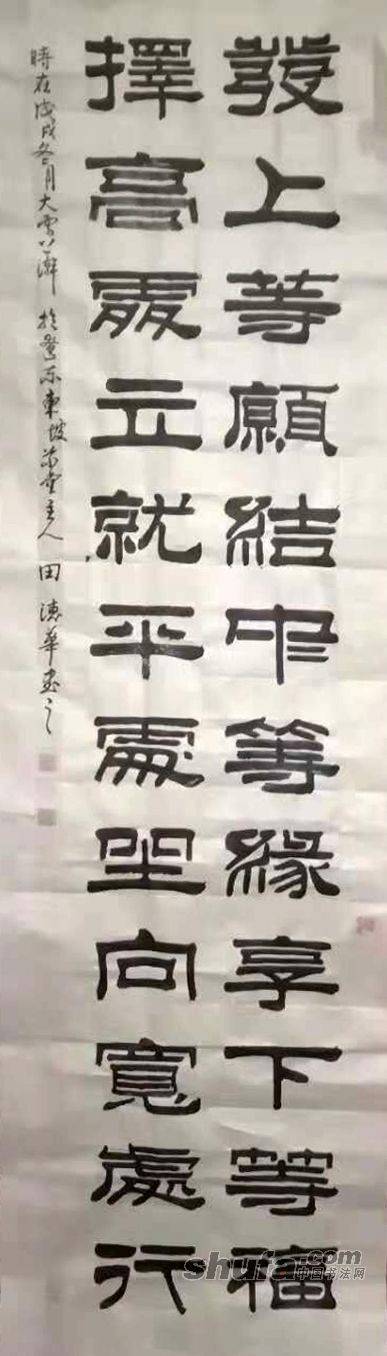 發上等願結中等緣享下等福
擇高處立就平處坐向寬處行
時在戊戌冬月大雪
東坡
主人田德華書之
shufa.com
中国书法网